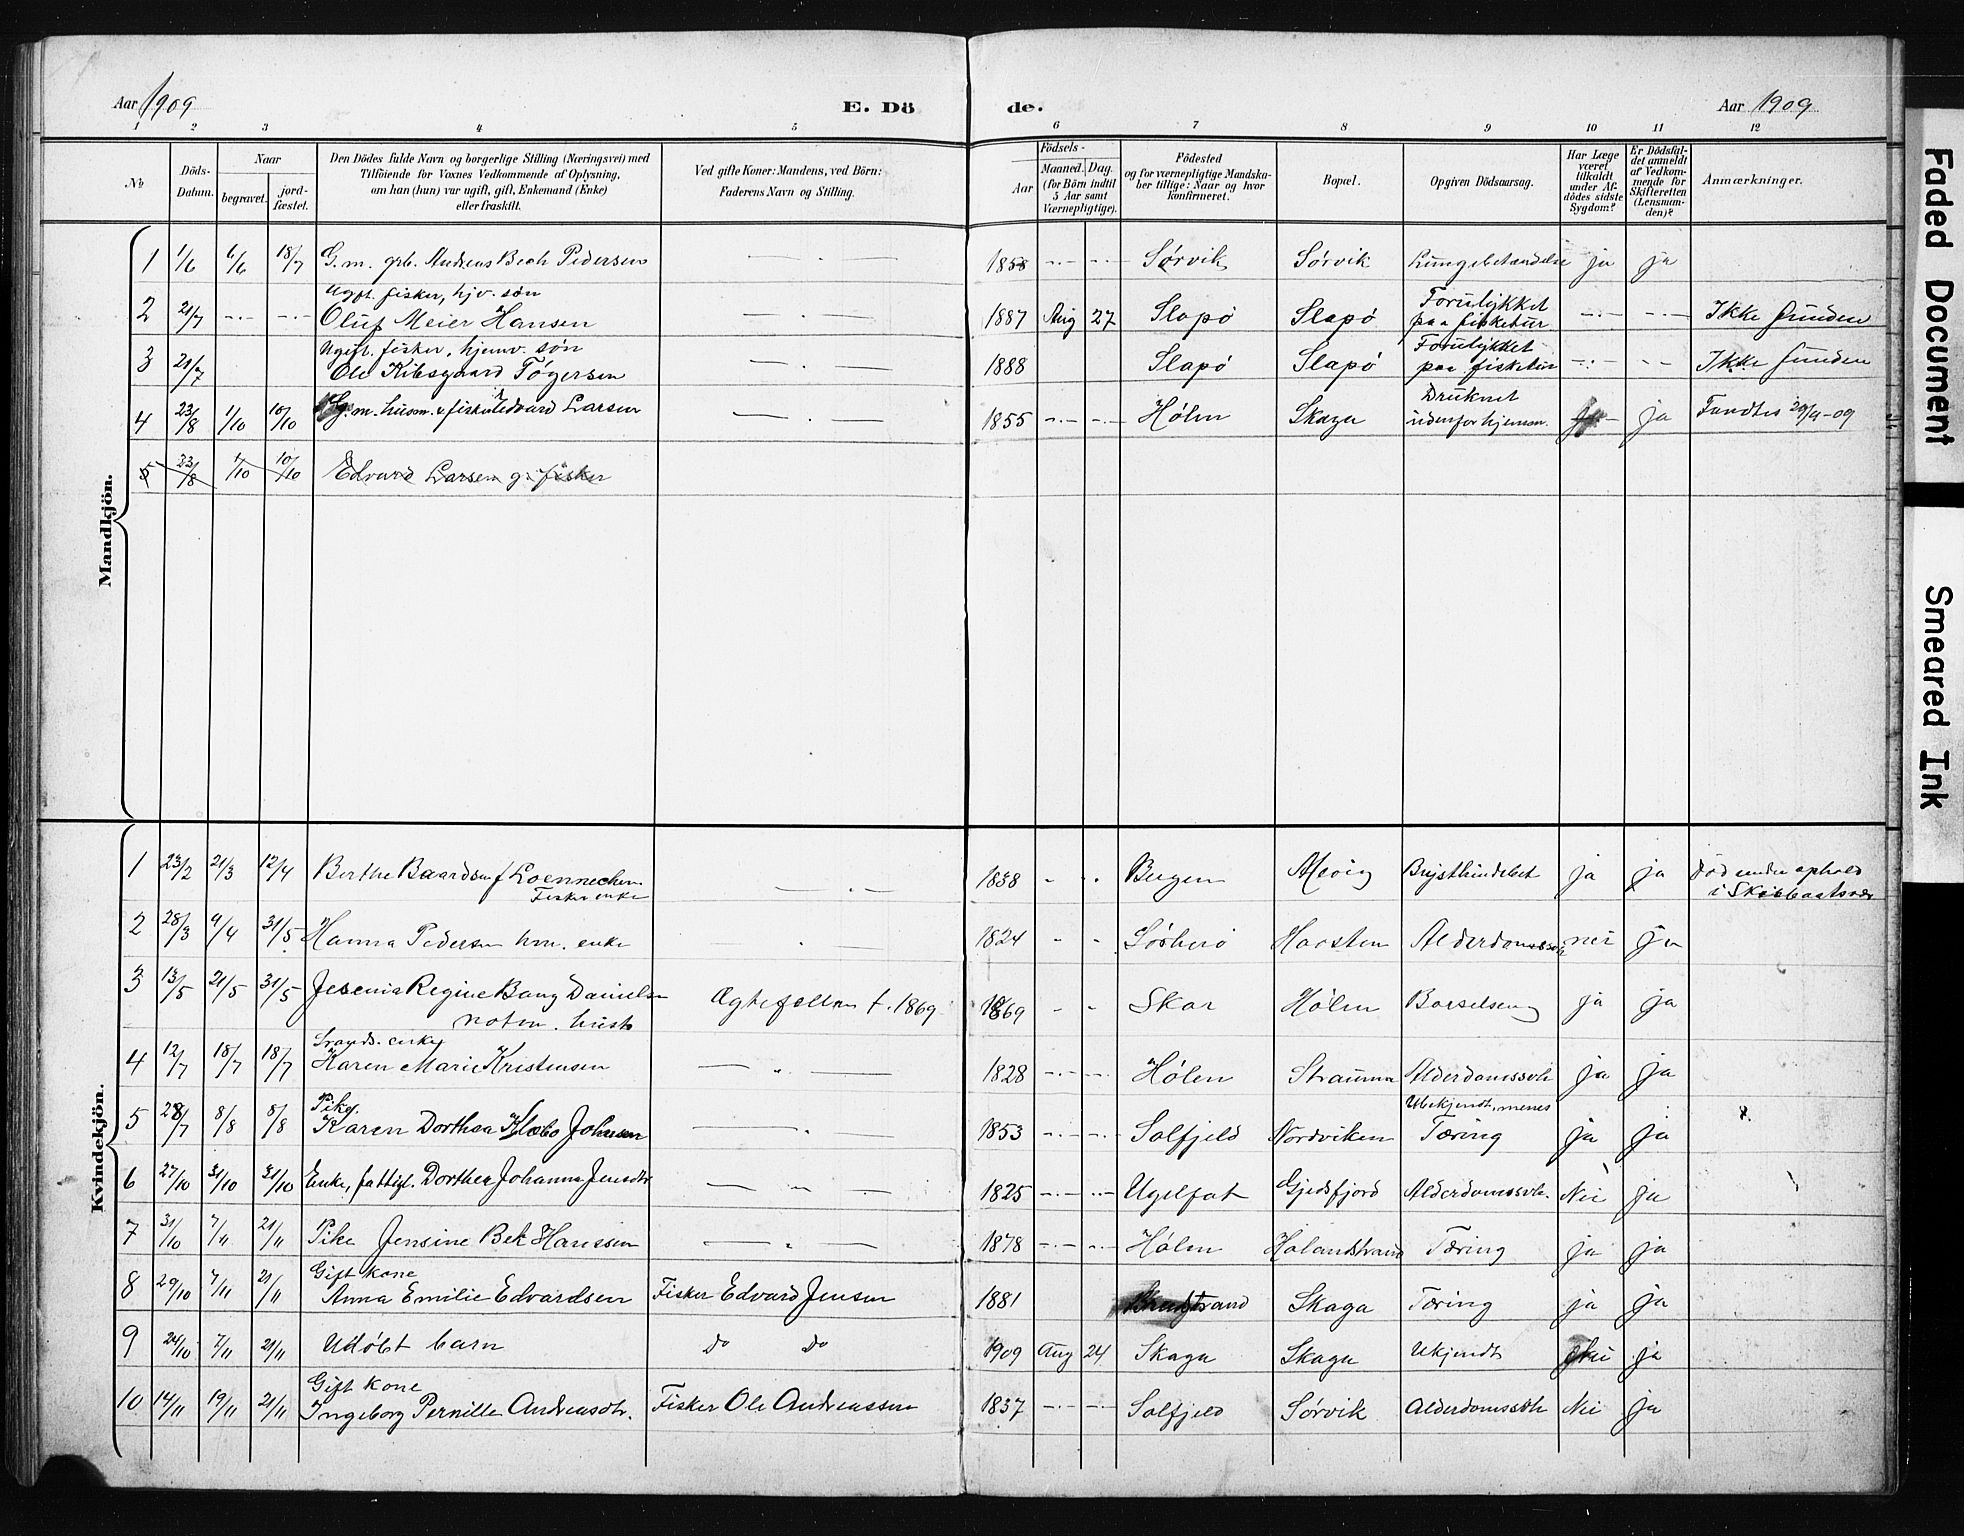 Aar 1909 E. Dö de. Aar 1909
1 2 3 4 5 6 7 8 9 10 11 12
No
Döds-Datum.
Naar
begravet.
jord-fæstet.
Den Dödes fulde Navn og borgerlige Stilling (Næringsvei) med
Tilföiende for Voxnes Vedkommende af Oplysning,
om han (hun) var ugift, gift, Enkemand (Enke)
eller fraskilt.
Ved gifte Koner: Mandens, ved Börn:
Faderens Navn og Stilling.
Födsels-
Aar
Maaned. Dag.
(for Börn indtil
5 Aar samt
Værnepligtige).
Födested
og for værnepligtige Mandska-
ber tillige: Naar og hvor
konfirmeret.
Bopæl.
Opgiven Dödsaarsag.
Har Læge
været
tilkaldt
under Af-
dödes sidste
Sygdom?
Er Dödsfal-
det anmeldt
af Vedkom-
mende for
Skifteretten
(Lensman-
den)?
Anmærkninger.
Mandkjön.
1 1/6 6/6 18/7 G. m. grb. Andreas Bech Pedersen 1858 Sørvik Sørvik Lungebetændelse ja ja
Ugft. fisker, hjv. søn
2 21/7 Oluf Meier Hansen 1887 Aug 27 Slapø Slapø Forulykket paa fisketur Ikke funden
Ugift. fisker, hjemv. søn
3 21/7 Ole Kibsgaard Tøgersen 1888 Slapø Slapø Forulykket paa fisketur Ikke funden
4 23/8 1/10 10/10 G. m. husm. & fisker Edvard Larsen 1855 Hølen Skaga Druknet udenfor hjemm. ja Fandtes 29/9-09
5 23/8 1/10 10/10 Edvard Larsen g. fisker
Kvindekjön.
1 23/2 21/3 12/4 Berthe Baardsen f Loennechen 1838 Bergen Brysthindebet ja ja Død under ophold
Fisker enke i Skibbaatsvær
2 28/3 9/4 31/5 Hanna Pedersen hm. enke 1824 Harsten nei ja
3 13/5 21/5 31/5 Jesenia Regine Bang Danielsen Ægtefellen f. 1869 1869 Skar Hølen Barselseng ja ja
4 12/7 18/7 18/7 Karen Marie Kristensen 1828 Hølen Strauman Alderdomssvh ja ja
Pike.
5 28/7 8/8 8/8 Karen Dorthea Klæbo Johnsen 1853 Solfjeld Nordviken Ubekjendt, menes Tæring ja ja
6 27/10 31/10 31/10 Enke, fattigl. Dorthea Johanna Jensdtr 1825 Ugelfat Gjedsfjord Alderdomssvh. Nei ja
7 31/10 7/11 21/11 Pike Jensine Bek Hanssen 1878 Hølen Halandstrand Tæring ja ja
Gift kone
8 29/10 7/11 21/11 Anna Emilie Edvardsen Fisker Edvard Jensen 1881 Skaga Tæring ja ja
9 24/10 7/11 21/11 Udøbt barn Do Do 1909 Aug 24 Skaga Skaga Ukjendt Nei ja
Gift kone
10 14/11 19/11 21/11 Ingeborg Pernille Andreasdtr. Fisker Ole Andreassen 1837 Solfjeld Sørvik Alderdomssvh Nei ja
Faded Document
Smeared Ink